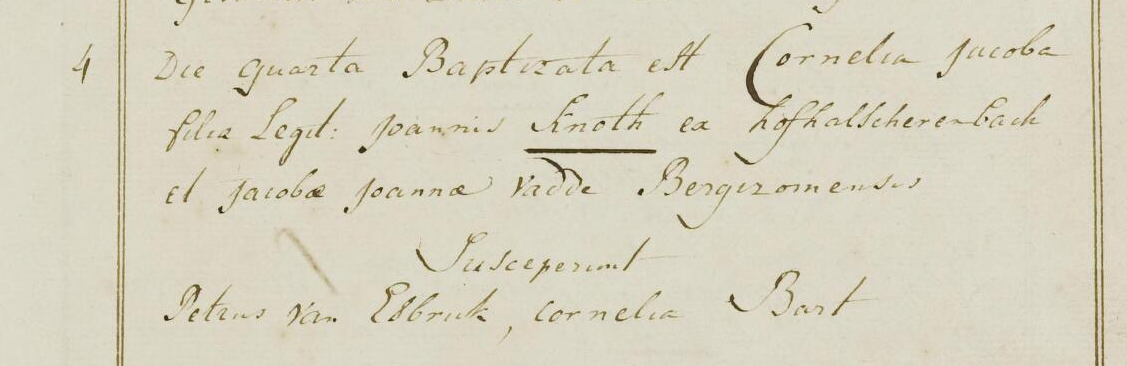 4 Die quarta Baptizata est Cornelia Jacoba
filia Legit: Joannis Knoth ex hofhalscherenbach
et Jacobæ Joannæ Vadde Bergizomensis
Susceperunt
Petrus van Esbruk, Cornelia Bart